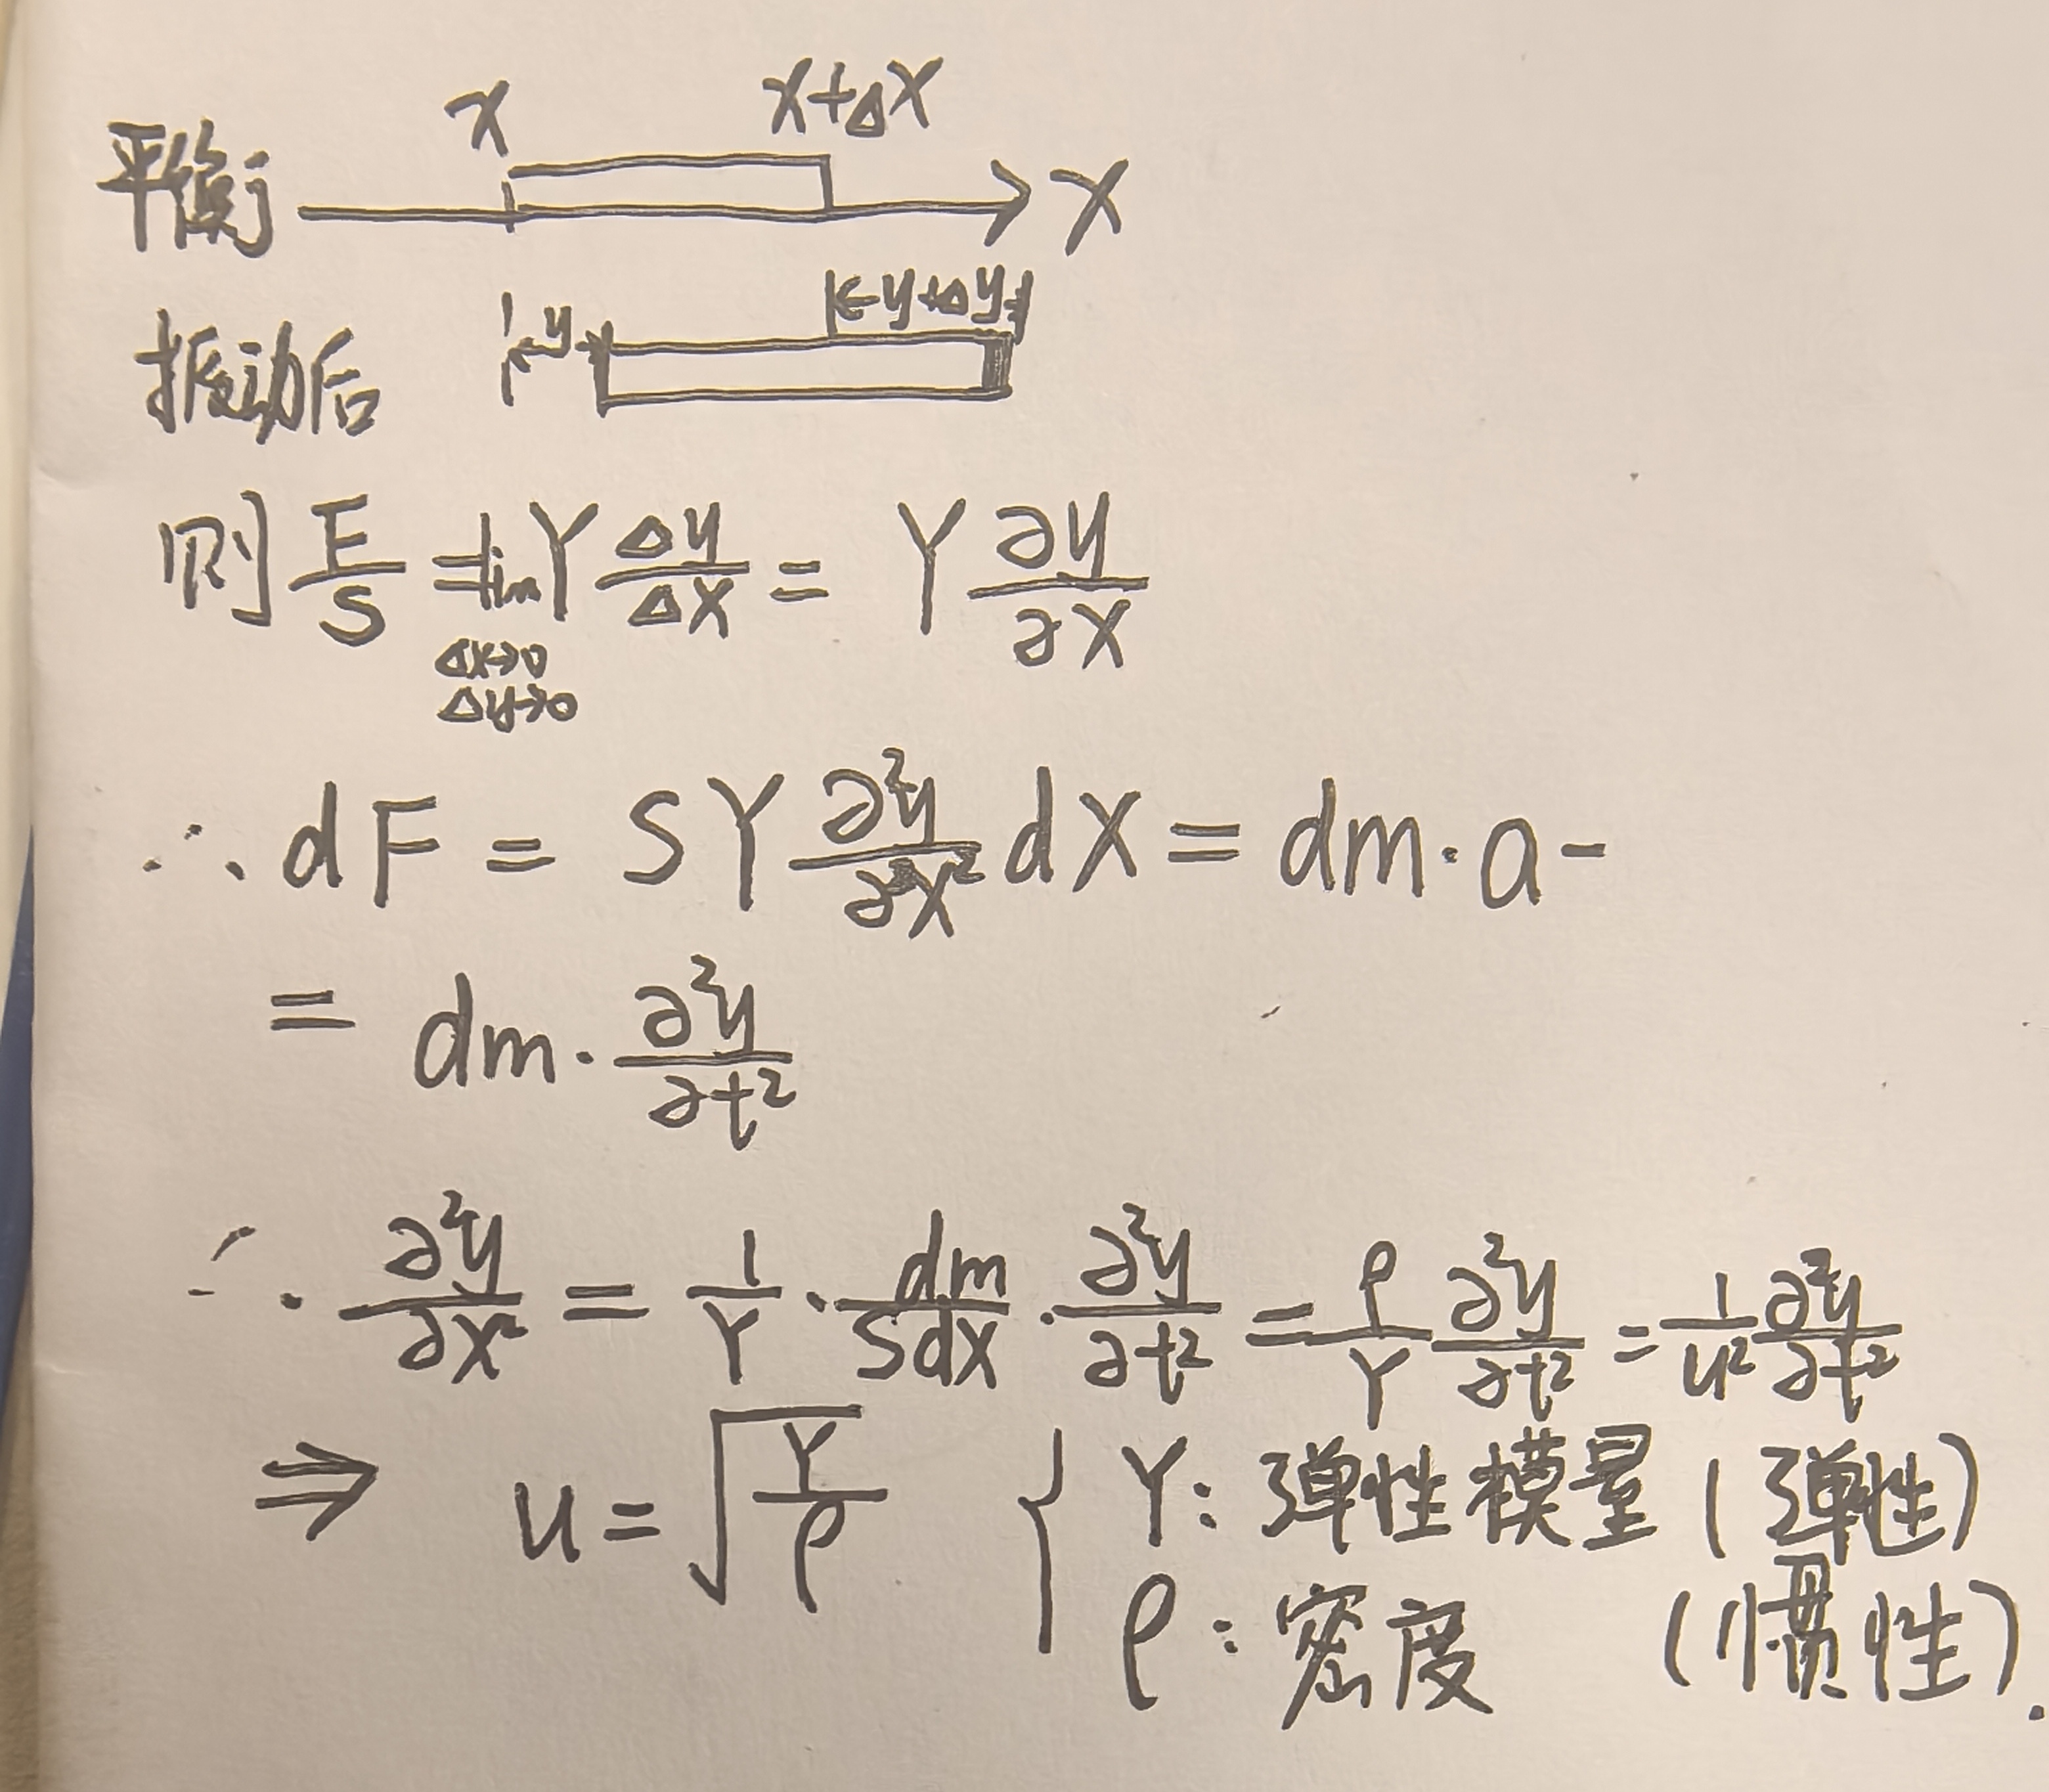 x x+Δx
平衡 x
y y+Δy
振动后
则 F/S = lim Y Δy/Δx = Y ∂y/∂x
Δx→0
Δy→0
∴ dF = SY ∂²y/∂x² dx = dm·a -
= dm·∂²y/∂t²
∴ ∂²y/∂x² = 1/Y · dm/Sdx · ∂²y/∂t² = ρ/Y ∂²y/∂t² = 1/u² ∂²y/∂t²
⇒ u = √(Y/ρ) { Y: 弹性模量 (弹性)
ρ: 密度 (惯性).